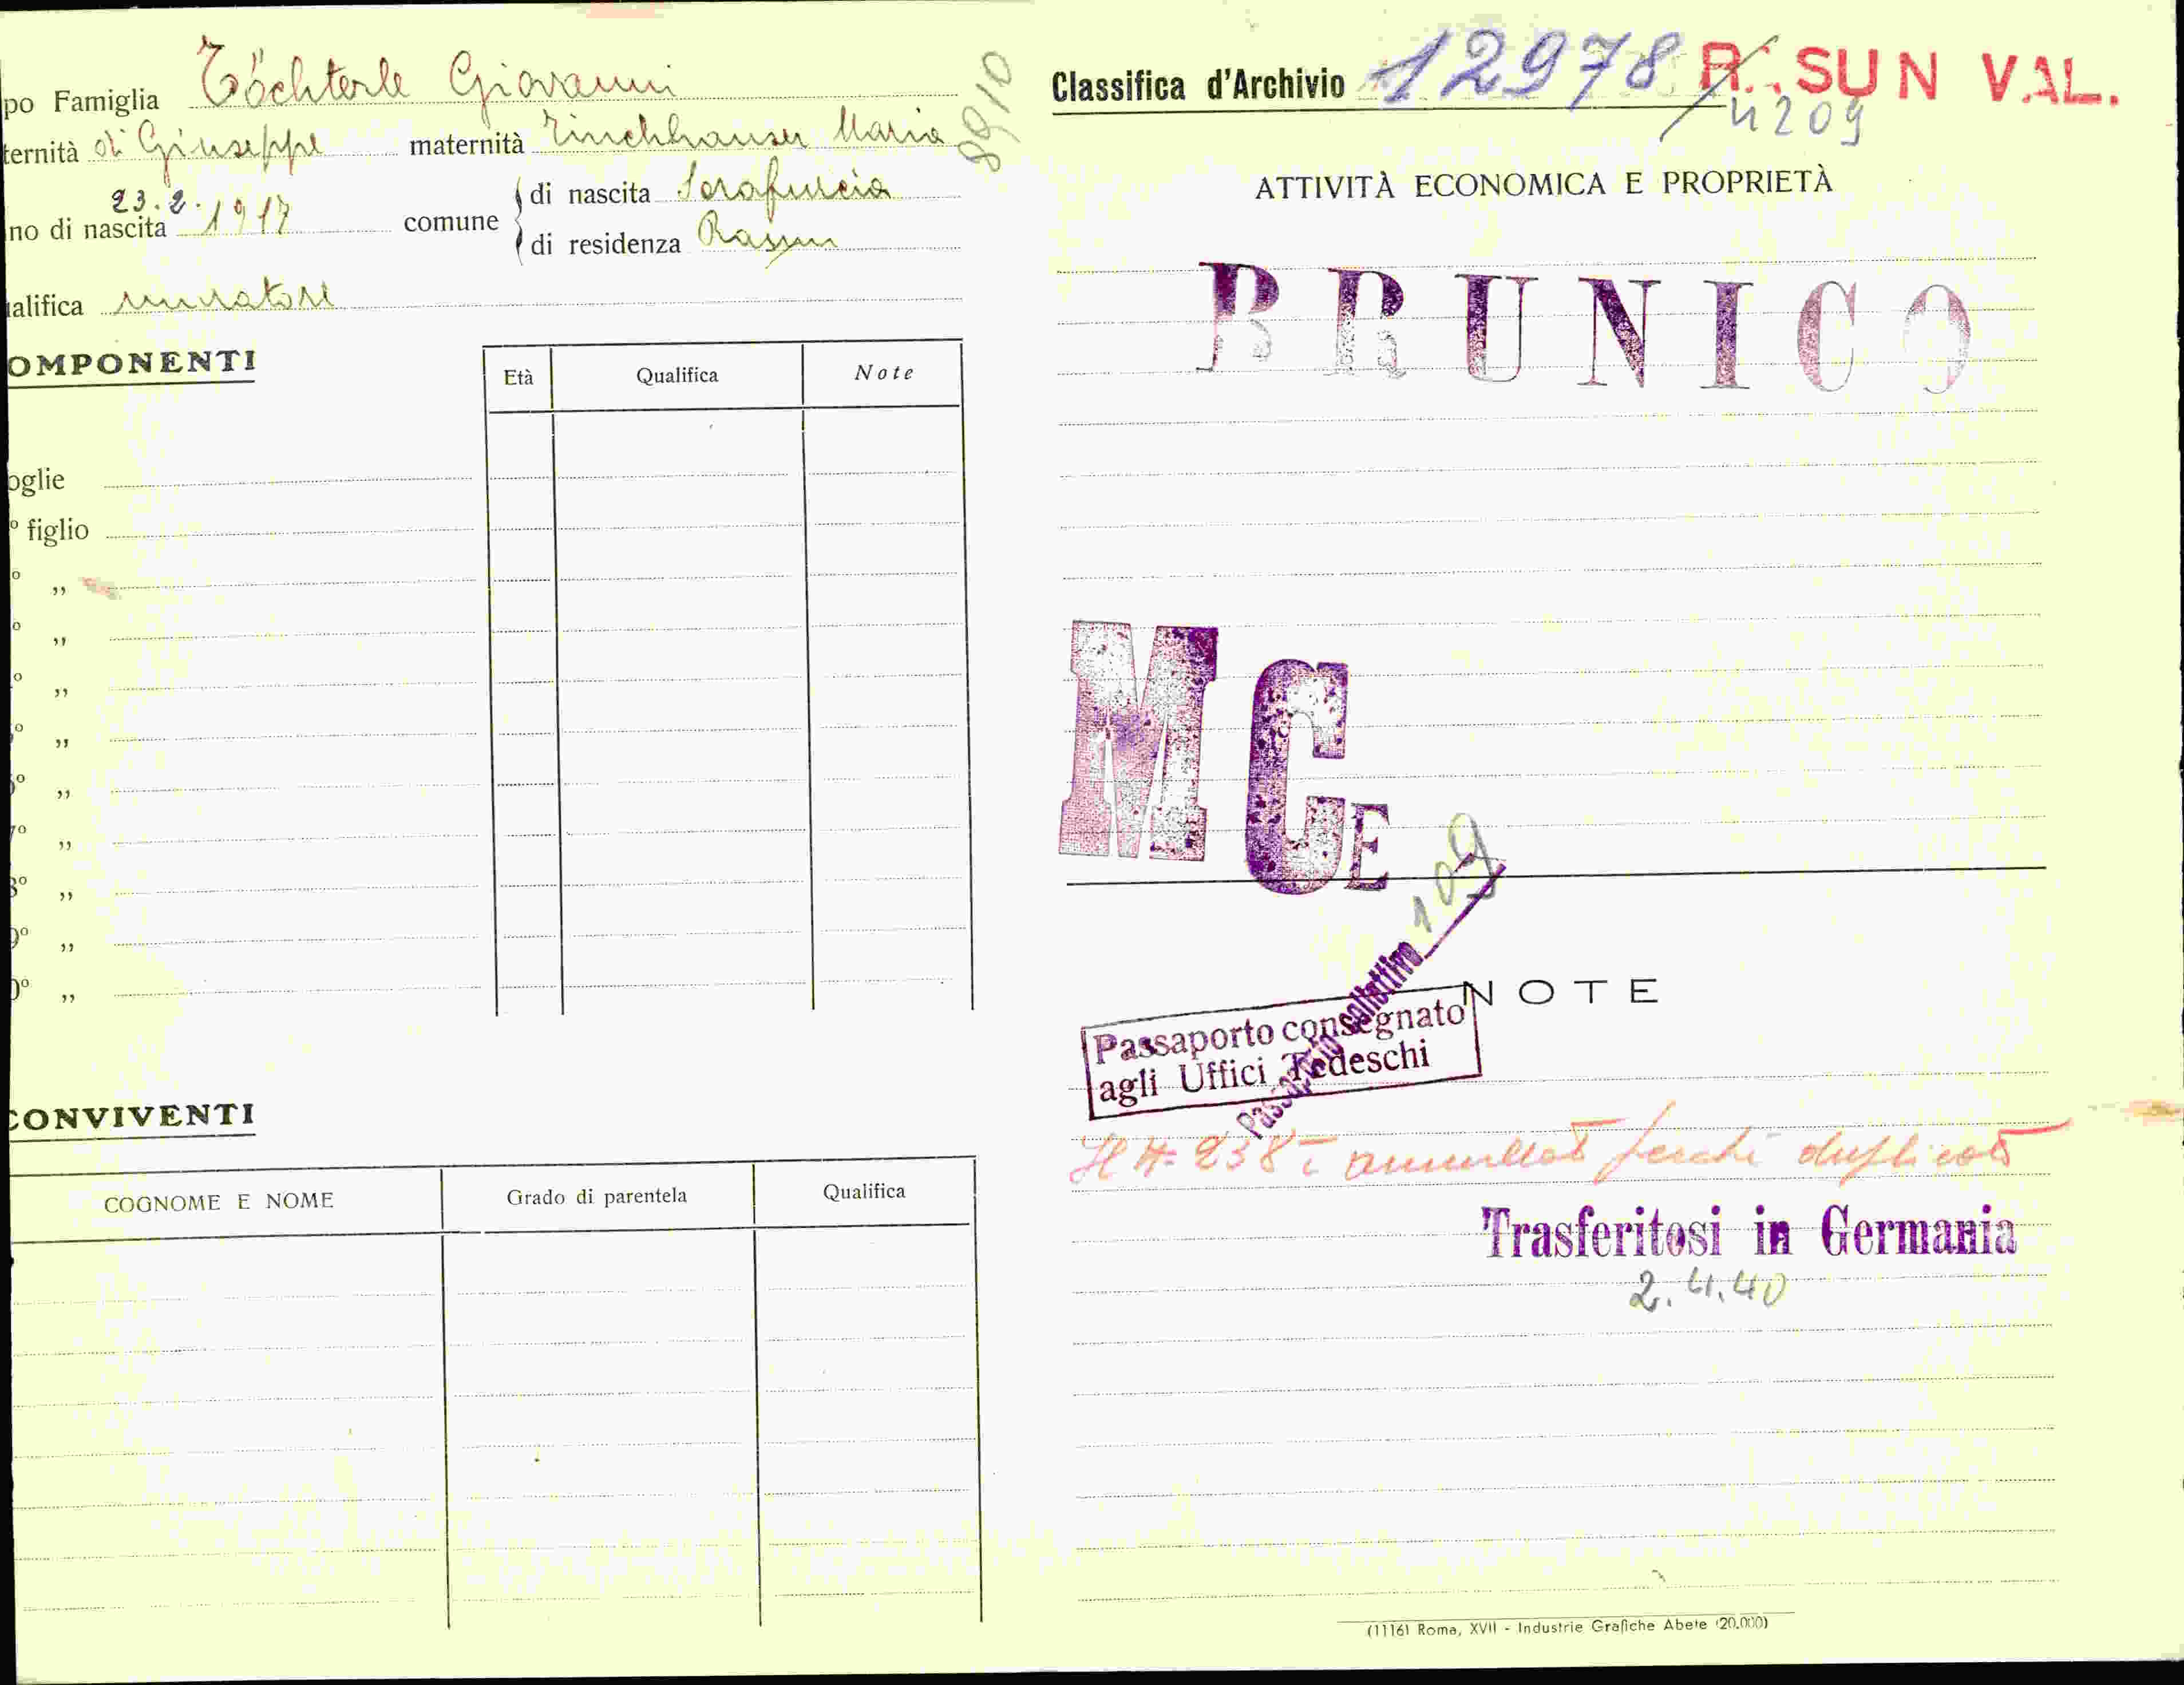 po Famiglia Töchterle Giovanni
ternità di Giuseppe maternità Maria
8910
23.2.
no di nascita 1917 comune di nascita
di residenza Rasun
alifica muratore
OMPONENTI
Età Qualifica Note
oglie
º figlio
º „
º „
º „
º „
º „
7º „
8º „
9º „
0º „
CONVIVENTI
COGNOME E NOME Grado di parentela Qualifica
Classifica d'Archivio 12978 R. SUN VAL.
4209
ATTIVITÀ ECONOMICA E PROPRIETÀ
BRUNICO
MCE
109
Passaporto collettivo
NOTE
Passaporto consegnato
agli Uffici Tedeschi
annullato perché duplicato
Trasferitosi in Germania
2.4.40
(11161 Roma, XVII - Industrie Grafiche Abete (20.000)